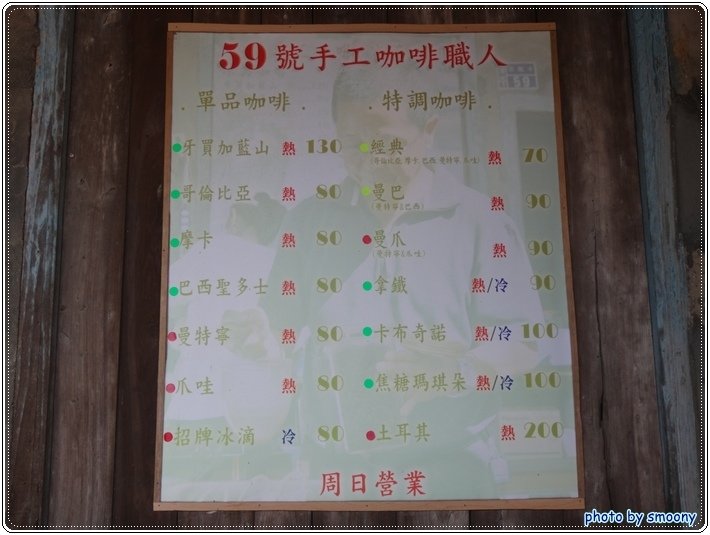 59號手工咖啡職人
59
.單品咖啡.
牙買加藍山 熱 130
哥倫比亞 熱 80
摩卡 熱 80
巴西聖多士 熱 80
曼特寧 熱 80
爪哇 熱 80
招牌冰滴 冷 80
.特調咖啡.
經典 熱 70
(哥倫比亞.摩卡.巴西.曼特寧.爪哇)
曼巴 熱 90
(曼特寧&巴西)
曼爪 熱 90
(曼特寧&爪哇)
拿鐵 熱/冷 90
卡布奇諾 熱/冷 100
焦糖瑪琪朵 熱/冷 100
土耳其 熱 200
周日營業
photo by smoony